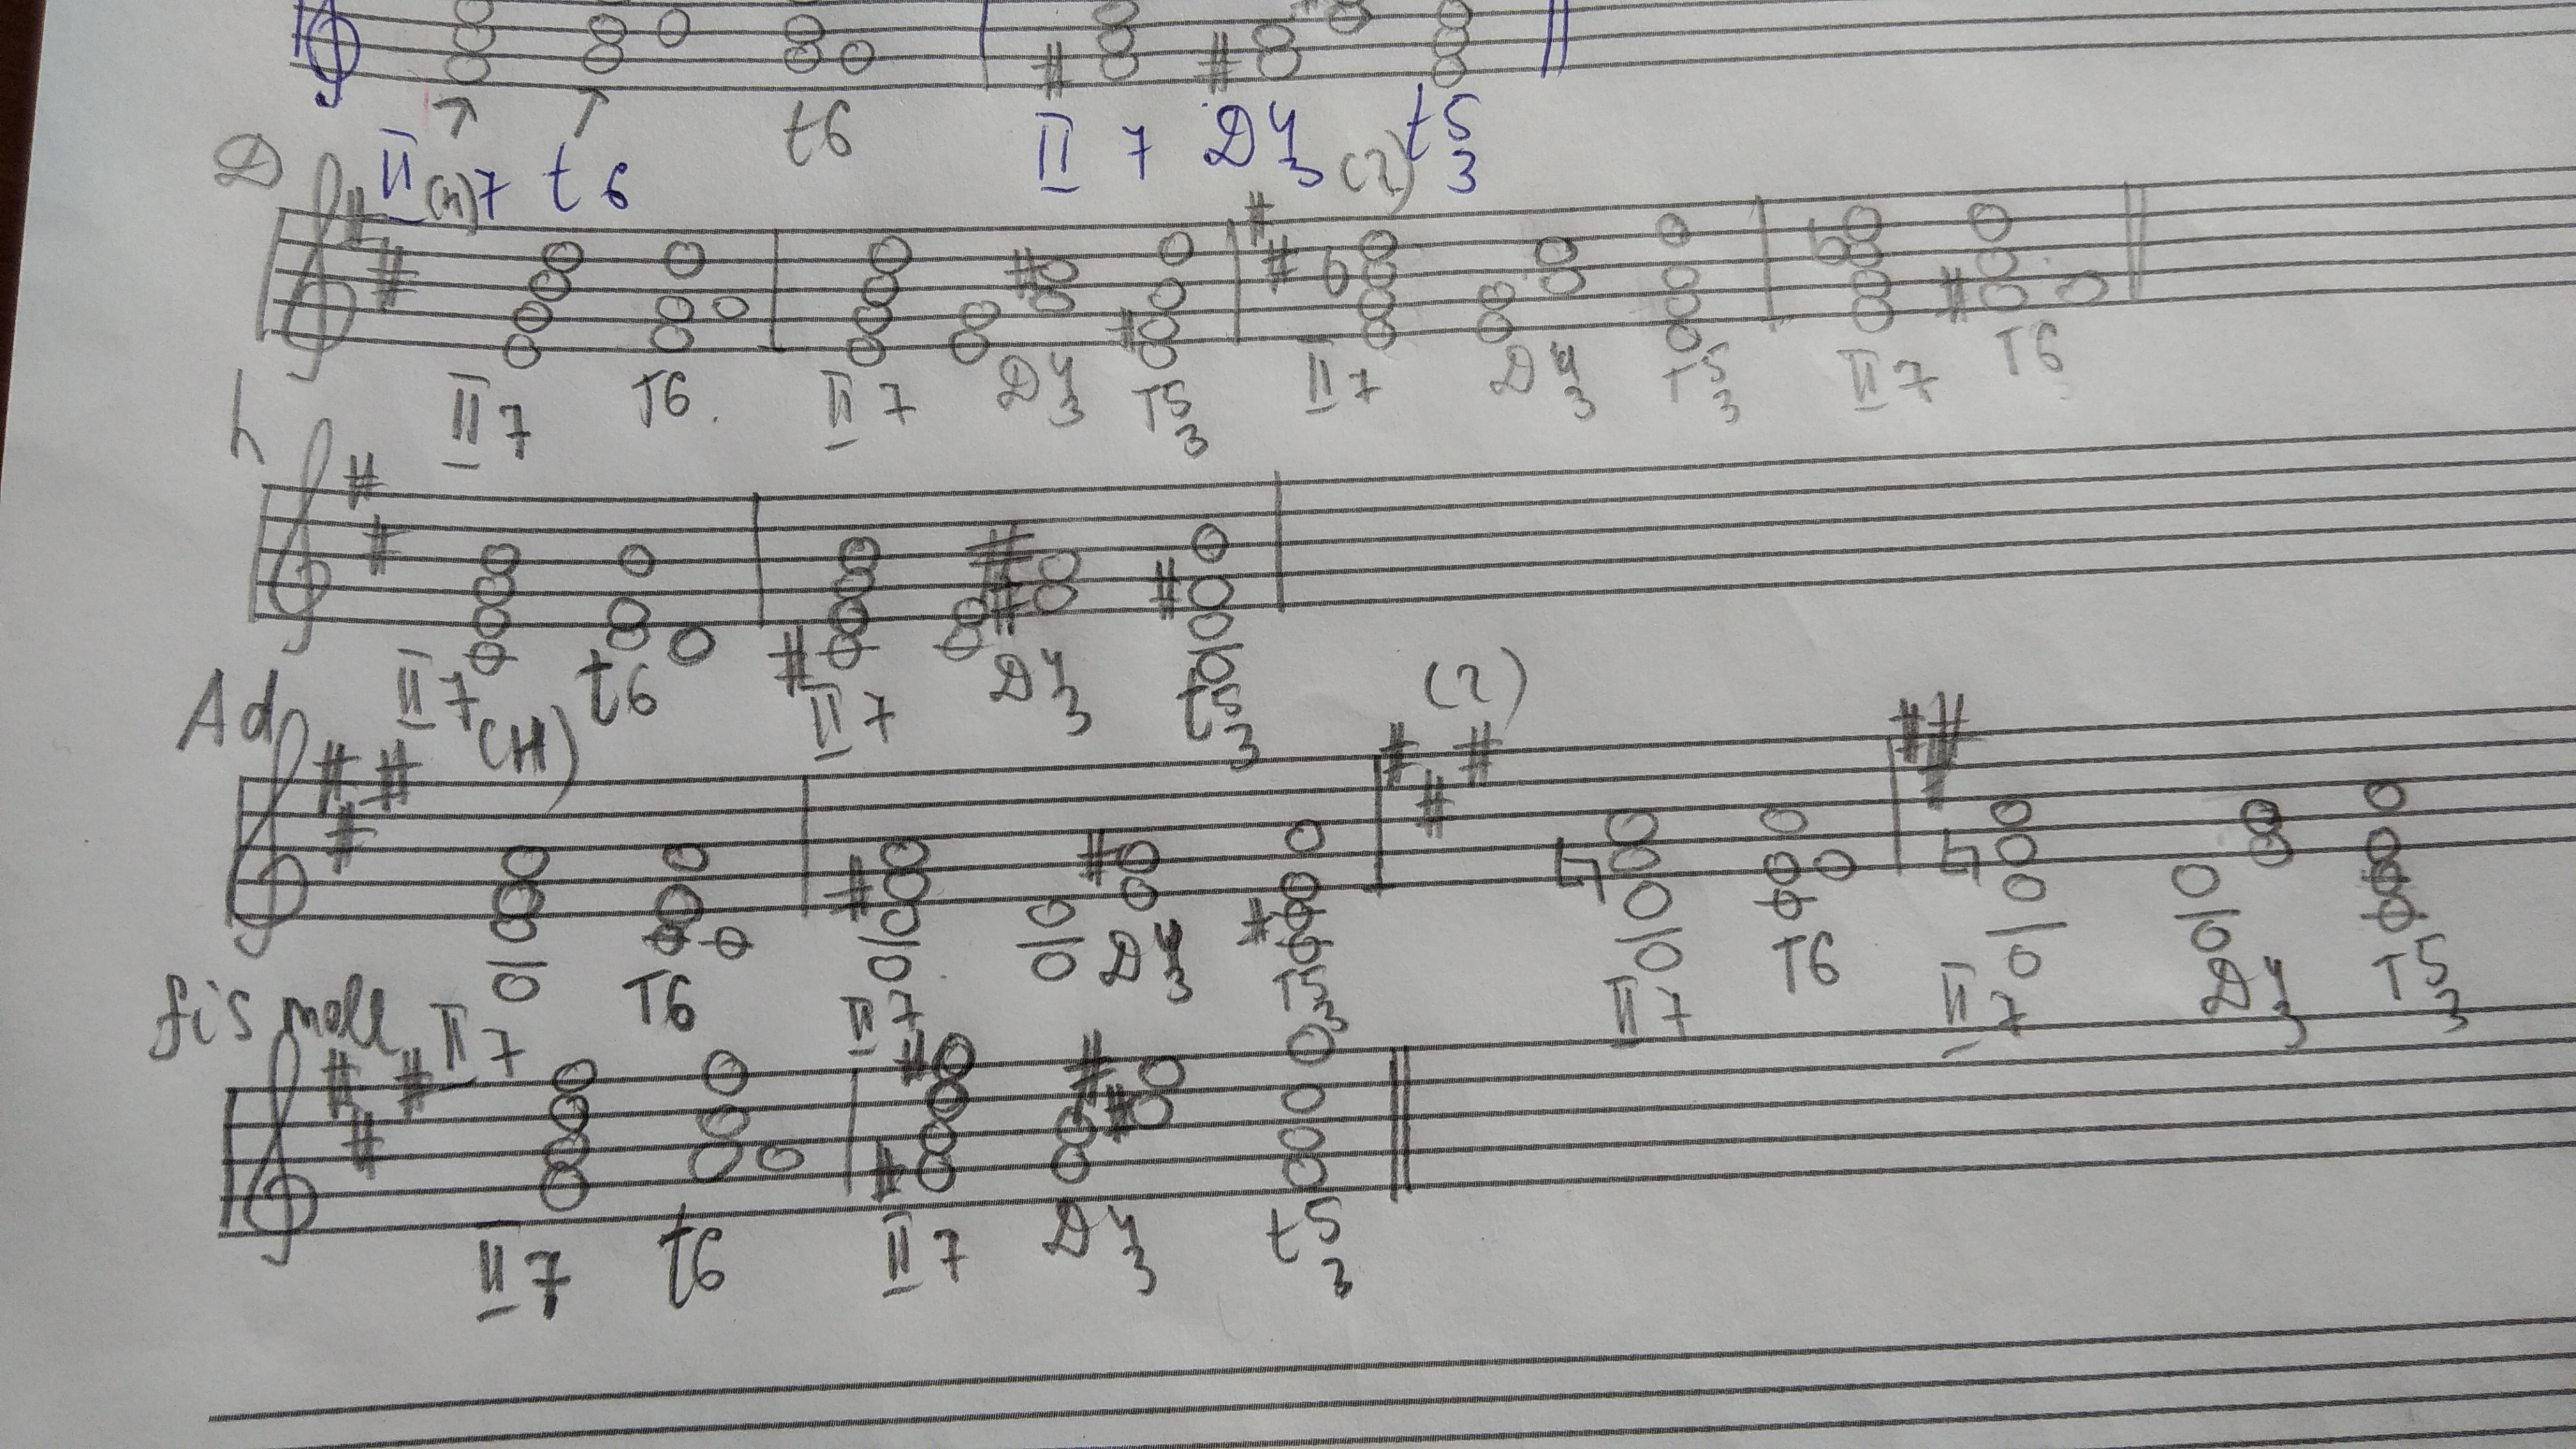 t6
II(н)7 t6 II 7 D4/3 t5/3
D (г)
II7 T6. II7 D4/3 T5/3 II7 D4/3 T5/3 II7 T6
h
II7 t6 II7 D4/3 t5/3
Ad (н) (г)
II7 T6 II7 D4/3 T5/3 II7 T6 II7 D4/3 T5/3
fis moll
II7 t6 II7 D4/3 t5/3